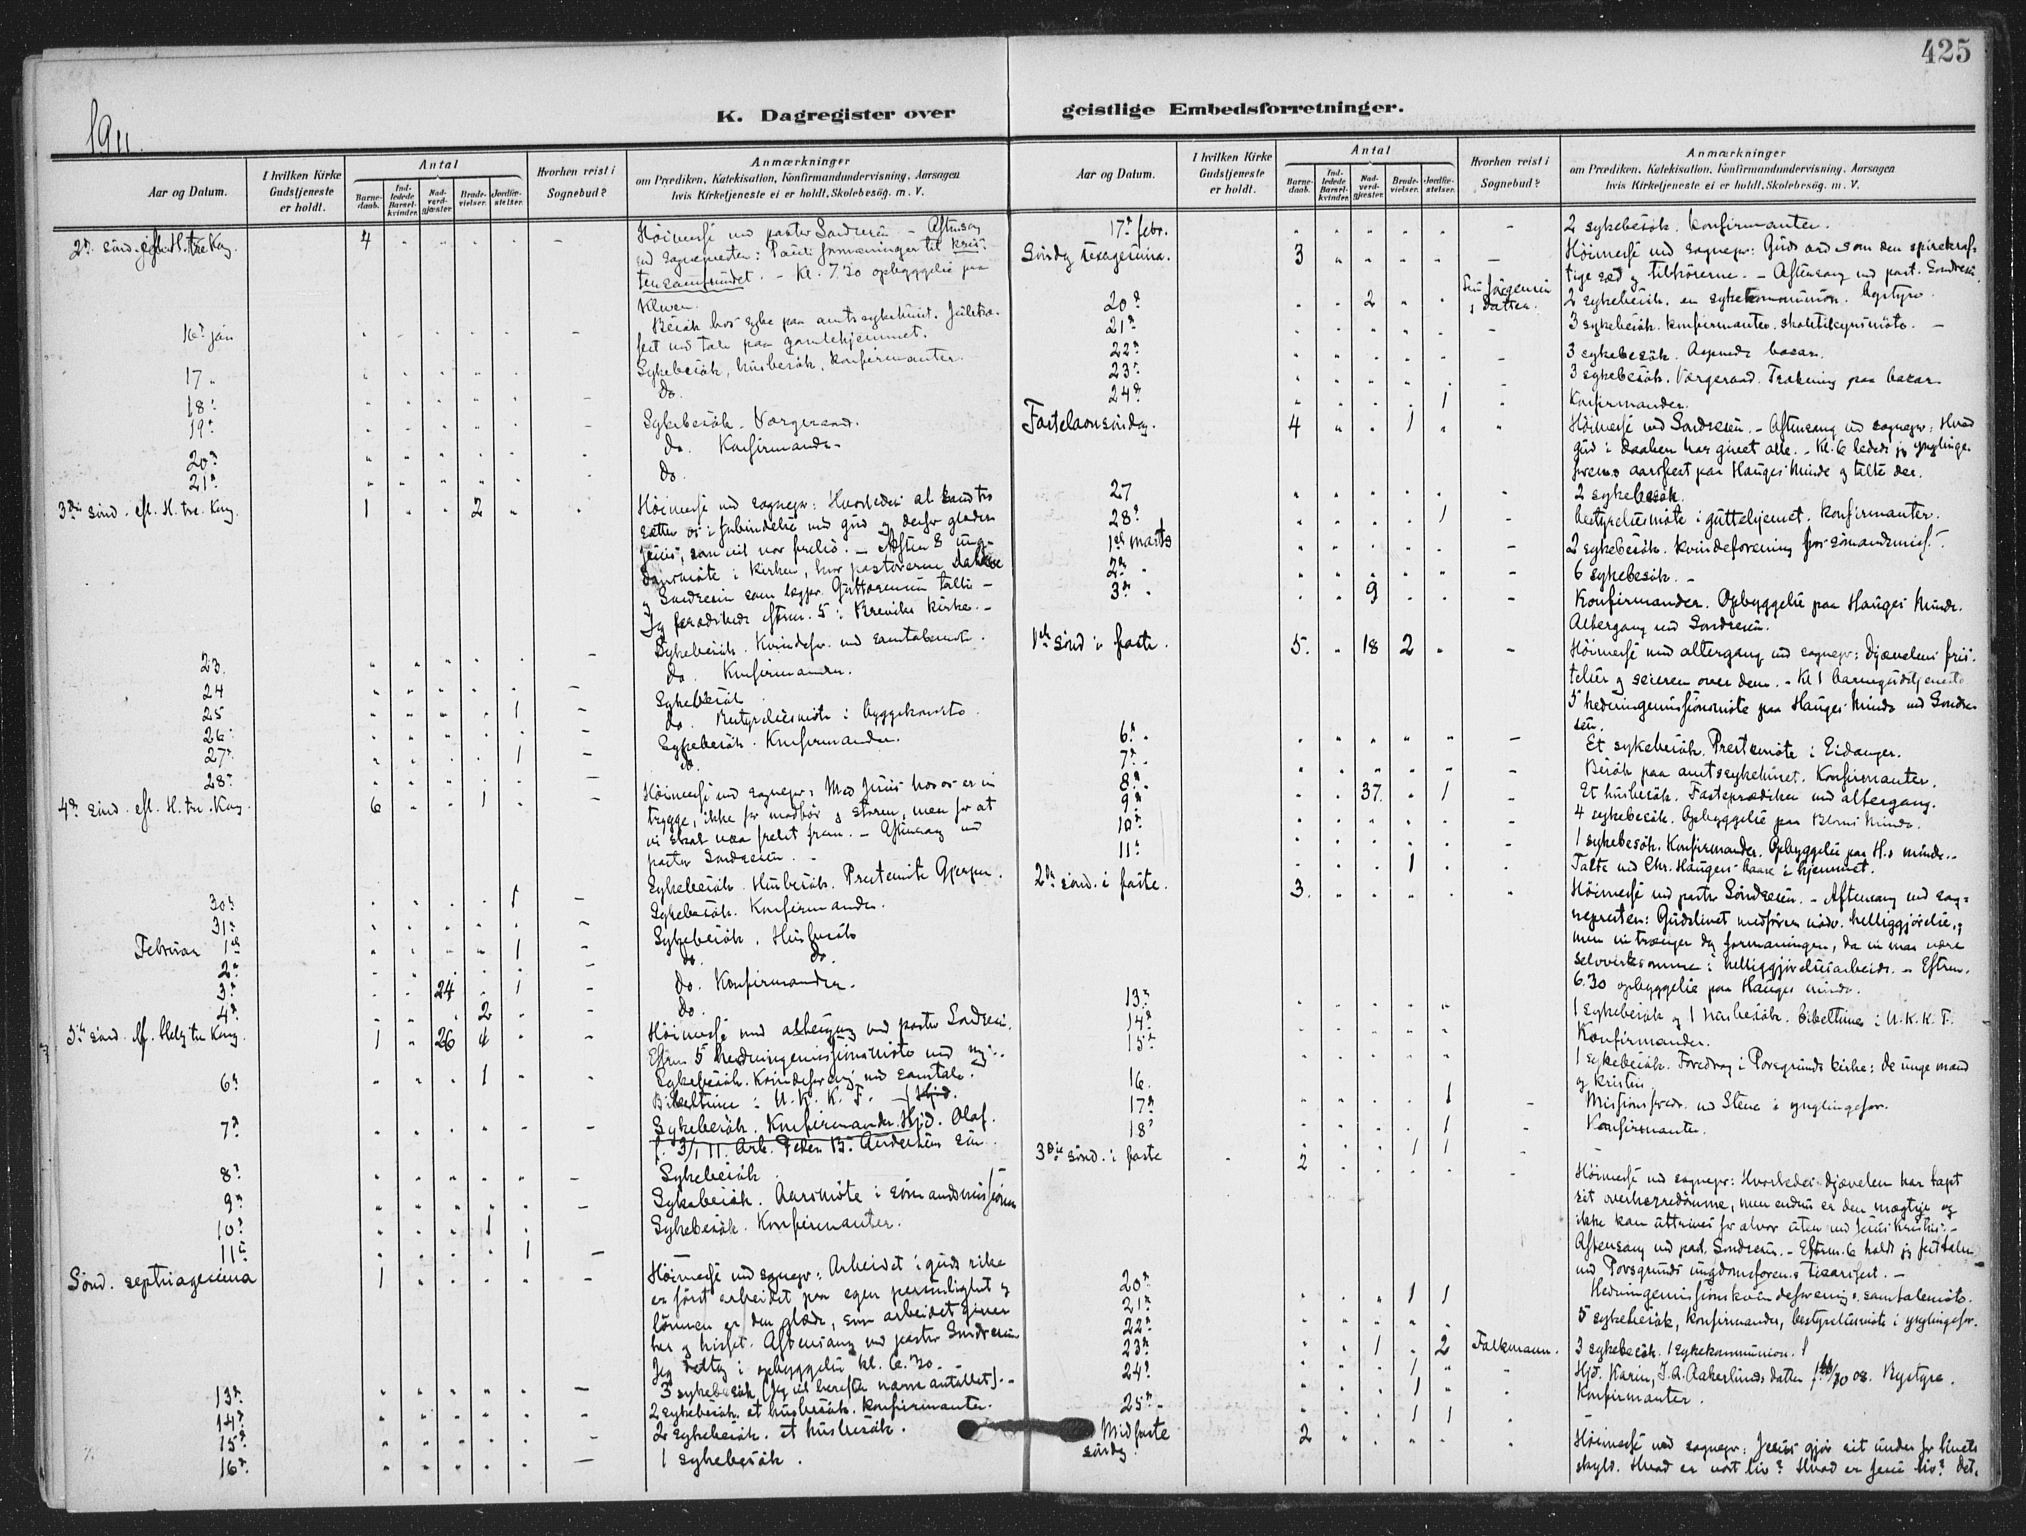 425
1911.
K. Dagregister over geistlige Embedsforretninger.
Aar og Datum.
I hvilken Kirke Gudstjeneste er holdt.
Antal
Barnedaab.
Indledede Barselkvinder.
Nadverdgjæster.
Brudevielser.
Jordfæstelser.
Hvorhen reist i Sognebud?
Anmærkninger
om Prædiken, Katekisation, Konfirmandundervisning, Aarsagen
hvis Kirketjeneste ei er holdt, Skolebesøg. m. V.
2n sönd. eft. H. tre Kong. 4 Höimesse ved pastor Sondresen - Aftensang
ved sognepresten: Pauli formaninger til kris-
tensamfundet. - Kl. 7.30 opbyggelse paa
Kleven.
16n jan Besök hos syke paa amtssykehuset. Juletræ-
fest med tale paa gamlehjemmet.
17 " Sykebesök, husbesök, konfirmanter.
18n do.
19n Sykebesök. Vergeraad.
20n do. Konfirmander.
21n do.
3die sönd. eft. H. tre Kong. 1 2 Höimesse ved sognepr: Hvorledes al sand tro
sætter os i forbindelse med gud og derfor glæder
Jesus, som vil vor frelse. - Aften 8 ung-
domsmöte i kirken, hvor pastorerne
og Sondresen som lægpr. Guttormsen talte -
Jeg prædikede efterm. 5 i Breviks kirke. -
23. Sykebesök. Kvindefor. med samtalemöte.
24 do. Konfirmander.
25 1 Sykebesök
26 do. Bestyrelsesmöte i byggekomite.
27n 1 Sykebesök. Konfirmander.
28n do.
4n sönd. eft. H. tre Kong. 6 1 Höimesse ved sognepr: Med Jesus hos os er vi
trygge, ikke for modbör og storm, men for at
vi skal naa frelst frem. - Aftensang ved
pastor Sondresen. -
30n 1 Sykebesök. Husbesök. Prestemöte Gjerpen.
31n Sykebesök. Konfirmander.
Februar 1ste 1 Sykebesök. Husbesök
2n do. do.
3n 24 1 do. Konfirmander.
4n 2 do.
5te sönd. ef. Hellig tre Kong. 1 26 4 Höimesse med altergang ved pastor Sondresen.
Efterm 5 hedningemissionsmöte ved mig.
6n 1 Sykebesök. Kvindeforening med samtale.
Bibeltime i U. K. K. F. -
7n Sykebesök. Konfirmander. Hjd. Olaf.
f. 3/1 11. Arb. Peder B. Andersens sön.
8n Sykebesök
9n Sykebesök. Aarsmöte i sömandsmissionen
10n 1 Sykebesök. Konfirmanter.
11n 1
Sönd. septuagesima 1 Höimesse ved sognepr: Arbeidet i guds rike
er först arbeidet paa egen personlighet og
lönnen er den glæde, som arbeidet giver
her og hisset. Aftensang ved pastor Sondresen
Jeg deltog i opbyggelse kl. 6.30. -
13n 3 sykebesök (Jeg vil herefter nævne antallet). -
14n 2 sykebesök. et husbesök. konfirmanter.
15n 2 sykebesök. et husbesök.
16n 1 sykebesök.
Aar og Datum.
I hvilken Kirke Gudstjeneste er holdt.
Antal
Barnedaab.
Indledede Barselkvinder.
Nadverdgjæster.
Brudevielser.
Jordfæstelser.
Hvorhen reist i Sognebud?
Anmærkninger
om Prædiken, Katekisation, Konfirmandundervisning, Aarsagen
hvis Kirketjeneste ei er holdt, Skolebesøg. m. V.
17n febr. 2 sykebesök. Konfirmanter.
Söndag sexagesima. 3 Höimesse ved sognepr: Guds ord som den spirekraf-
tige sæd og tilhörerne. - Aftensang ved past. Sondresen.
20n 2 Jörgensens datter. 2 sykebesök. en sykekommunion. bystyre.
21n 3 sykebesök. konfirmanter. skoletilsynsmöte. -
22n 3 sykebesök. Aapnede basar.
23n 3 sykebesök. Vergeraad. Trækning paa basar.
24n 1 Konfirmander.
Fastelavnssöndag. 4 1 Höimesse ved Sondresen. - Aftensang ved sognepr: Hvad
gud i daaben har givet alle. - Kl. 6 ledede jeg ynglinge-
foren.s aarsfest paa Hauges Minde og talte der.
27 2 sykebesök.
28n 1 bestyrelsesmöte i guttehjemet. konfirmanter.
1ste marts 2 sykebesök. kvindeforening for sömandsmis.
2n " 6 sykebesök. -
3n " 9 Konfirmander. Opbyggelse paa Hauges Minde.
Altergang ved Sondresen.
1ste sönd i faste. 5. 18 2 Höimesse med altergang ved sognepr: Djævelens fris-
telser og seieren over dem. - Kl 1 barnegudstjeneste
5 hedningemissionsmöte paa Hauges Minde ved Sondre-
sen.
6n " Et sykebesök. Prestemöte i Eidanger.
7n " Besök paa amtssykehuset. Konfirmanter.
8n 37. 1 Et husbesök. Fasteprædiken med altergang.
9n 4 sykebesök. Opbyggelse paa Minde.
10n 1 sykebesök. Konfirmander. Opbyggelse paa H.s minde. -
11n 1 Talte ved Chr. Hauges baare i hjemmet.
2den sönd. i faste. 3. Höimesse ved pastor Sondresen. - Aftensang ved sog-
nepresten: Gudslivet medförer nödv. helliggjörelse,
men vi trænger dog formaningen, da vi maa være
selvvirksomme i helliggjörelsesarbeide. - Efterm.
6.30 opbyggelse paa Hauges minde.
13n 1 sykebesök og 1 husbesök. bibeltime i U.K.K.F.
14n Konfirmander.
15n 1 sykebesök. Foredrag i Porsgrunds kirke: de unge mænd
og kristen
16. 1 Missionsforedr. ved Steen i ynglingefor.
17n 1 Konfirmanter.
18n 1 1
3die sönd. i faste 2 Höimesse ved sognepr: Hvorledes djævelen har tapt
sit overherredömme, men endnu er den mægtige og
ikke kan utdrives for alvor uten ved Jesus Kristus. -
Aftensang ved past. Sondresen. - Efterm. 6 holdt jeg festtalen
ved Porsgrunds ungdomsforen.s fest. -
20n 1 1 Hedningemissionskvindeforening s. samtalemöte.
21n 5 sykebesök, konfirmander, bestyrelsesmöte i ynglingefor.
22n 1 2 Falkmann. 3 sykebesök. 1 sykekommunion.
23n 1 Hjd. Karen, J.A. Aakerlunds datter f. 08. Bystyre.
24n 1 Konfirmanter.
25n 1 1
Midfaste söndag 2 Höimesse ved sognepr: Jesus gjör sit under for livets
skyld. Hvad er vort liv? Hvad er Jesu liv? Det.